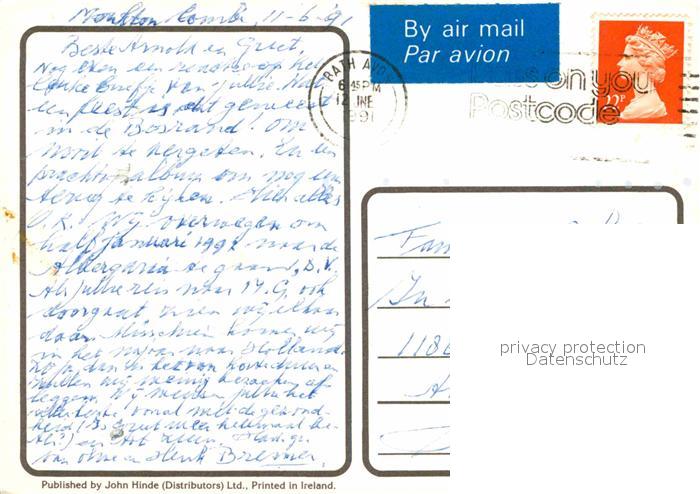 Monkton Combe, 11-6-'91
Beste Arnold en Griet,
Nog even een
leuke briefje van jullie. Wat
een feest is dat geweest
in de Bosrand! Om
nooit te vergeten. En een
prachtig album om nog eens
terug te kijken. Hier alles
O.K. Wij overwegen om
half januari 1992 naar de
Albergaria te gaan, D.V.
Als jullie reis naar M.G. ook
doorgaat, zien wij elkaar
daar. Misschien komen wij
in het najaar naar Holland.
Zo ja, dan
zullen wij weinig bezoeken af-
leggen. Wij wensen jullie het
allerbeste, vooral met de gezond-
heid
en tot ziens. Hart. gr.
van ome en Henk Bremer.
By air mail
Par avion
BATH AVON
6.45PM
12 JNE
1991
on you
Postcode
22P
Fam
In
1186
privacy protection
Datenschutz
Published by John Hinde (Distributors) Ltd., Printed in Ireland.